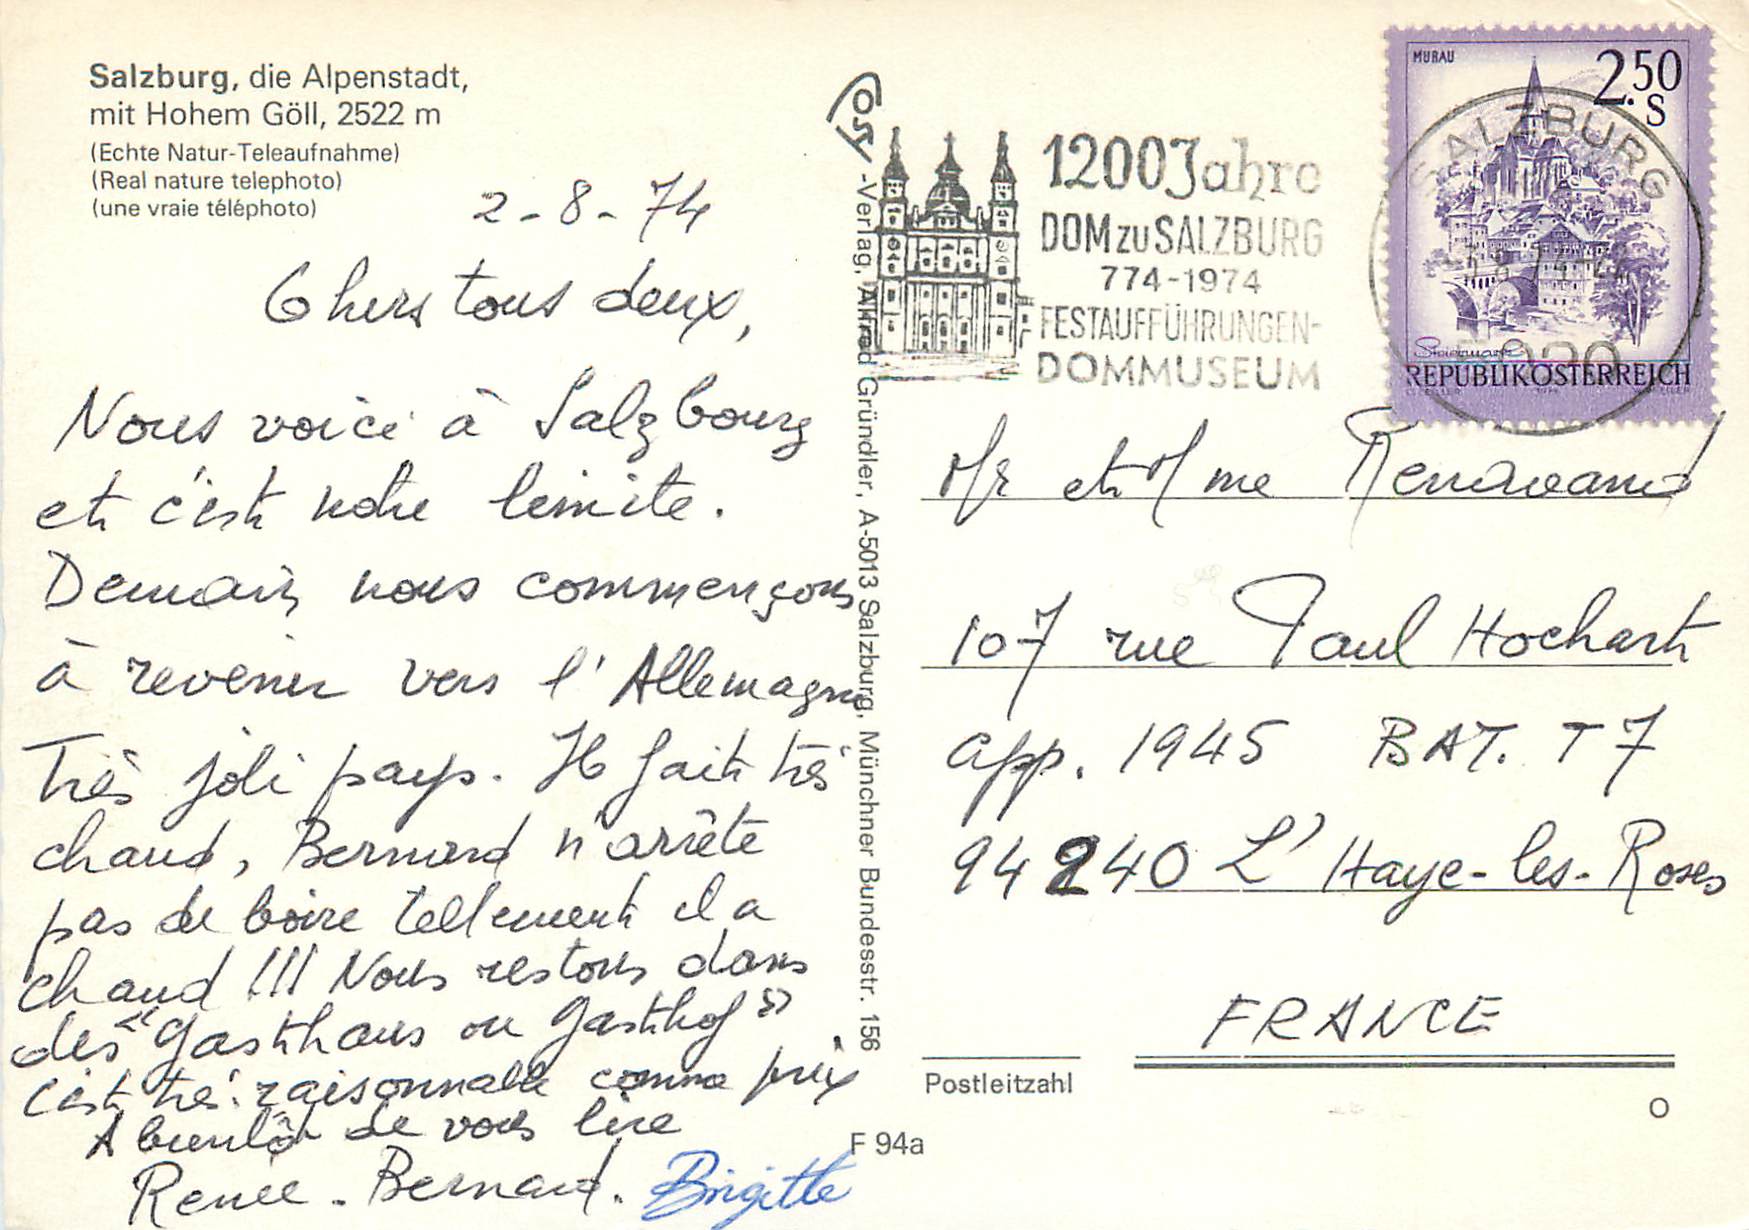 Salzburg, die Alpenstadt,
mit Hohem Göll, 2522 m
(Echte Natur-Teleaufnahme)
(Real nature telephoto)
(une vraie téléphoto)
2-8-74
Chers tous deux,
Nous voici à Salzbourg
et c'est notre limite.
Demain nous commençons
à revenir vers l'Allemagne
Très joli pays. Il fait très
chaud, Bernard n'arrête
pas de boire tellement il a
chaud !!! Nous restons dans
des "Gasthaus ou Gasthof"
c'est très raisonnable comme prix
A bientôt de vous lire
Renée - Bernard. Brigitte
Cosy-Verlag, Alfred Gründler, A-5013 Salzburg, Münchner Bundesstr. 156
F 94a
1200 Jahre
DOM zu SALZBURG
774-1974
FESTAUFFÜHRUNGEN-
DOMMUSEUM
MURAU
2.50
S
SALZBURG
5020
Steiermark
REPUBLIK ÖSTERREICH
Mr et Mme
107 rue Paul Hochart
app. 1945 BAT. T7
94240 L'Haye-les-Roses
FRANCE
Postleitzahl
O